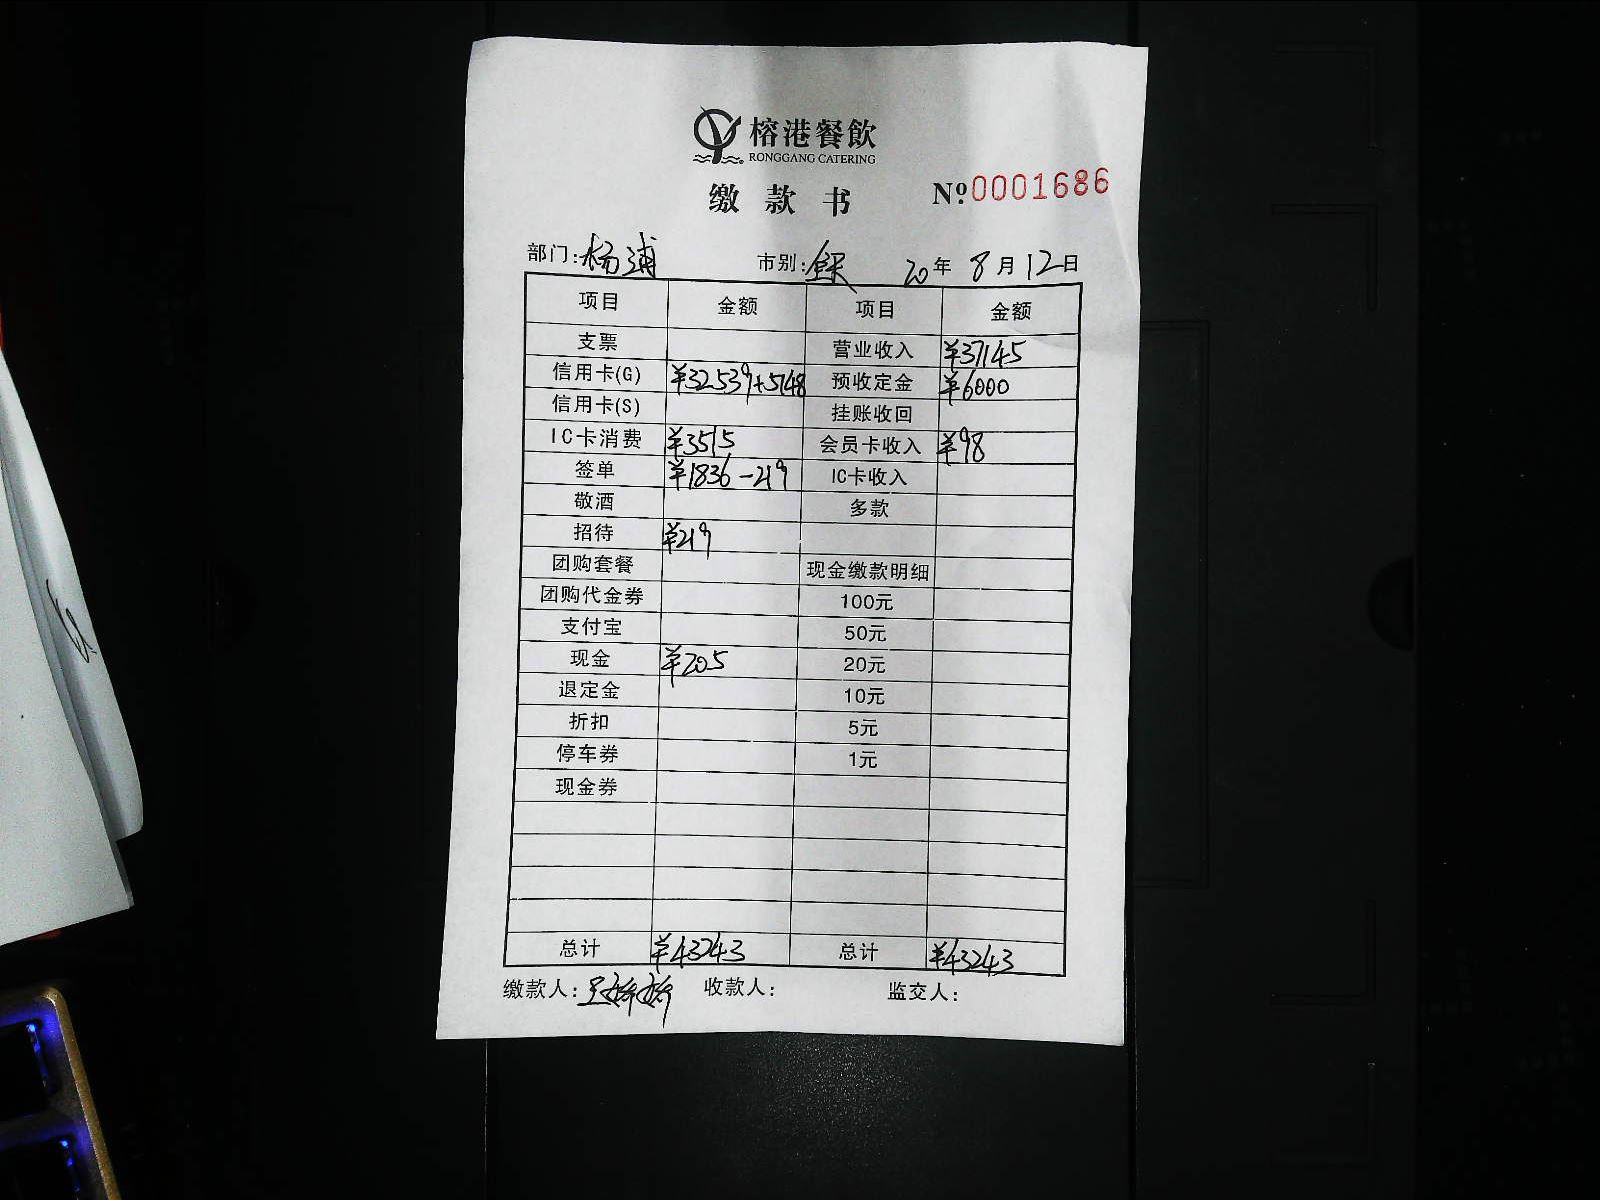 榕港餐飲
RONGGANG CATERING
缴款书 №0001686
部门:杨浦 市别: 20年 8月12日
项目 金额 项目 金额
支票 营业收入 ¥37145
信用卡(G) ¥32539+5148 预收定金 ¥6000
信用卡(S) 挂账收回
IC卡消费 ¥3515 会员卡收入 ¥98
签单 ¥1836-219 IC卡收入
敬酒 多款
招待 ¥219
团购套餐 现金缴款明细
团购代金券 100元
支付宝 50元
现金 ¥205 20元
退定金 10元
折扣 5元
停车券 1元
现金券
总计 ¥43243 总计 ¥43243
缴款人: 收款人: 监交人: